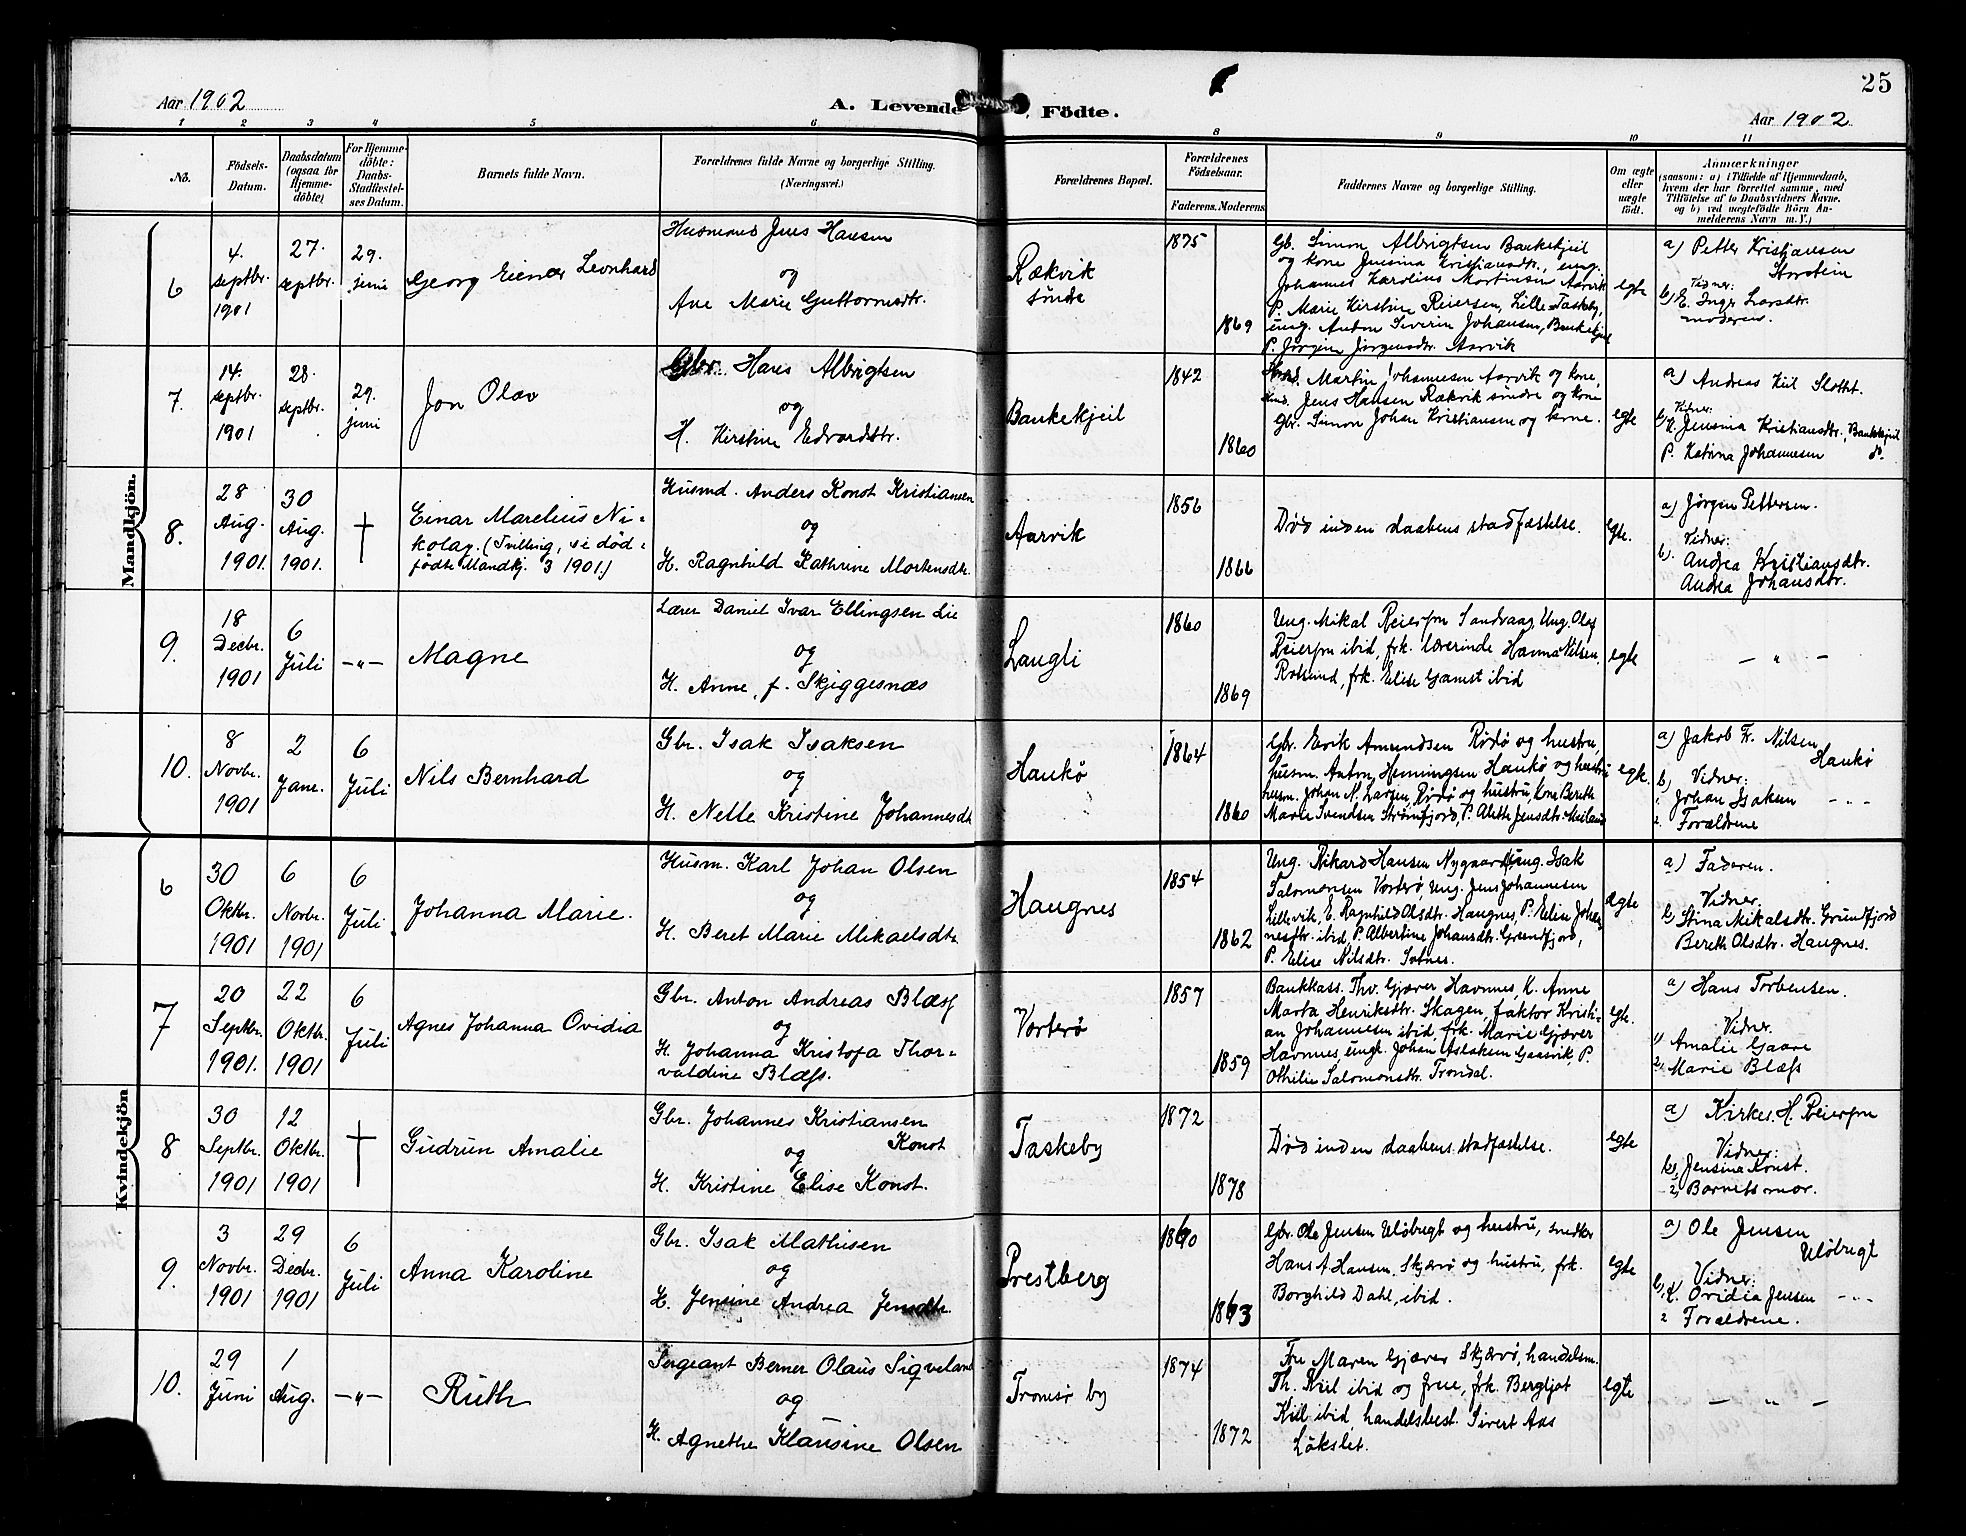 25
Aar 1902
A. Levende Födte.
Aar 1902
1 2 3 4 5 6 8 9 10 11
No.
Födsels-
Datum.
Daabsdatum
(ogsaa for
Hjemme-
döbte)
For Hjemme-
döbte:
Daabs-
Stadfæstel-
ses Datum.
Barnets fulde Navn.
Forældrenes fulde Navne og borgerlige Stilling.
(Næringsvei.)
Forældrenes Bopæl.
Forældrenes
Födselsaar.
Faderens. Moderens
Faddernes Navne og borgerlige Stilling.
Om ægte
eller
uægte
födt.
Anmærkninger
(saasom: a) i Tilfælde af Hjemmedaab,
hvem der har forrettet samme, med
Tilföielse af to Daabsvidners Navne.
og b) ved uægtefödte Börn An-
melderens Navn m. V.)
Mandkjön.
6
4.
septbr.
1901
27.
septbr.
29.
juni
Georg Einar Leonhard
Husmand Jens Hansen
og
Ane Marie Guttormsdtr.
Rækvik
søndre
1875
1869
Gb. Simon Albrigtsen Bankekjeil
og kone Jensina Kristiansdtr., ung.
Johannes Karolius Mortinsen Aarvik
P. Marie Kirstine Reiersen, Lille Taskeby,
ung. Anton Siverin Johansen, Bankekjeil
P. Jørgine Jørgensdtr. Aarvik
egte
a) Petter Kristiansen
Storstein
Vidner:
b) E. Inger Larsdtr.
moderen.
7.
14.
septbr.
1901
28.
septbr.
29.
juni
Jon Olav
Gbr. Hans Albrigtsen
og
H. Kirstine Edvardsdtr.
Bankekjeil
1842
1860
Husmd. Martin Johannesen Aarvik og kone,
Husd. Jens Hansen Rækvik søndre og kone
Gbr. Simon Johan Kristiansen og kone.
egte
a) Andreas Kiil Slottet.
Vidner:
b) K. Jensina Kristiansdtr., Bankekjeil
P. Katrina Johannesen do.
8.
28
Aug.
1901.
30
Aug.
1901.
†
Einar Marelius Ni-
kolay. (Tvilling, se død-
fødte Mandkj. 3 1901.)
Husmd. Anders Konst Kristiansen
og
H. Ragnhild Kathrine Mortensdtr.
Aarvik
1856
1866
Død inden daabens stadfæstelse.
egte.
a) Jørgen Pettersen.
Vidner:
b) Andrea Kristiansdtr.
Andrea Johansdtr.
9.
18
Decbr.
1901
6
Juli
—"—
Magne
Lærer Daniel Ivar Ellingsen Lie
og
H. Anne, f. Skjeggesnæs
Langli
1860
1869
Ung. Mikal Reiersen Sandvaag, Ung. Olaf
Reiersen ibid, frk. lærerinde Hanna Nilsen,
Rotsund, frk. Elise Gamst ibid
egte
— " —
10.
8
Novbr.
1901
2
Janr.
6
Juli
Nils Bernhard
Gbr. Isak Isaksen
og
H. Nette Kristine Johannesdtr.
Haukø
1864
1860
Gbr. Erik Amundsen Rødø og hustru,
husm. Anton Henningsen Haukø og hustru
husm. Johan N. Larsen, Rødø og hustru, kone Bereth
Marie Svendsen Strømfjord, P. Alette Jensdtr. Meiland
egte.
a) Jakob Fr. Nilsen
Haukø
b) Vidner:
1. Johan Isaksen —"—
2. Forældrene
Kvindekjön
6
30
Oktbr.
1901
6
Novbr.
1901
6
Juli
Johanna Marie.
Husm. Karl Johan Olsen
og
H. Beret Marie Mikaelsdtr.
Haugnes
1854
1862
Ung. Rikard Hansen Nygaard, ung. Isak
Salomonsen Vorterø, ung. Jens Johannesen
Lillevik, E. Ragnhild Olsdtr. Haugnes, P. Eline Johan-
nesdtr. ibid, P. Albertine Johansdtr. Grundfjord,
P. Elise Nilsdtr. Sotnes.
ægte
a) Faderen.
Vidner.
b) Stina Mikalsdtr. Grundfjord
Bereth Olsdtr. Haugnes.
7
20
Septbr.
1901.
22
Oktbr.
1901
6
Juli
Agnes Johanna Ovidia
Gbr. Anton Andreas Blæss
og
H. Johanna Kristofa Thor-
valdine Blæss.
Vorterø
1857
1859
Bankkass. Thv. Gjæver Havnnes, K. Anne
Marta Henriksdtr. Skagen, faktor Kristi-
an Johannesen ibid, frk. Marie Gjæver
Havnnes, ungk. Johan Aslaksen Gaasvik, P.
Othilie Salomonsdtr. Trondal.
egte.
a) Hans Torbensen.
Vidner.
1) Amalie Gaare
2) Marie Blæss
8
30
Septbr.
1901
12
Oktbr.
1901
†
Gudrun Amalie
Gbr. Johannes Kristiansen
Konst
og
H. Kristine Elise Konst.
Taskeby
1872
1878
Død inden daabens stadfæstelse.
egte
a) Kirkes. H. Reiersen
Vidner:
b) 1, Jensina Konst.
2, Barnets mor.
9.
3
Novbr.
1901
29
Decbr.
1901
6
Juli
Anna Karoline
Gbr. Isak Mathisen
og
H. Jensine Andrea Jensdtr.
Prestberg
1860
1863
Gbr. Ole Jensen Uløbugt og hustru, snedker
Hans A Hansen, Skjærø og hustru, frk.
Borghild Dahl, ibid.
egte
a) Ole Jensen
Uløbugt
Vidner:
b) 1. K. Ovidia Jensen —"—
2 Forældrene.
10.
29
Juni
1
Aug.
—"—
Ruth
Sergeant Berner Olaus Sigveland
og
H. Agnethe Klausine Olsen
Tromsø by
1874
1872
Fru Maren Gjæver Skjærvø, handelsm.
Th. Kiil ibid og frue, frk. Bergljot
Kiil ibid, handelsbest. Sivert Aas
Løkslet.
egte
— " —